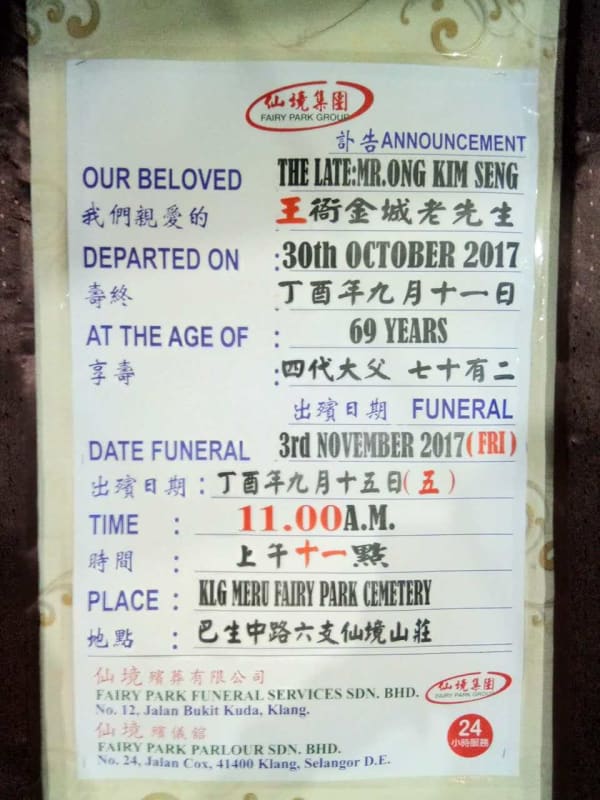 仙境集團
FAIRY PARK GROUP
訃告 ANNOUNCEMENT
OUR BELOVED THE LATE:MR.ONG KIM SENG
我們親愛的 王衙金城老先生
DEPARTED ON :30th OCTOBER 2017
壽終 丁酉年九月十一日
AT THE AGE OF : 69 YEARS
享壽 :四代大父 七十有二
出殯日期 FUNERAL
DATE FUNERAL 3rd NOVEMBER 2017(FRI)
出殯日期:丁酉年九月十五日(五)
TIME : 11.00A.M.
時間 : 上午十一點
PLACE : KLG MERU FAIRY PARK CEMETERY
地點 : 巴生中路六支仙境山莊
仙境殯葬有限公司
FAIRY PARK FUNERAL SERVICES SDN. BHD.
仙境集團
FAIRY PARK GROUP
No. 12, Jalan Bukit Kuda, Klang.
仙境殯儀館
FAIRY PARK PARLOUR SDN. BHD.
No. 24, Jalan Cox, 41400 Klang, Selangor D.E.
24
小時服務